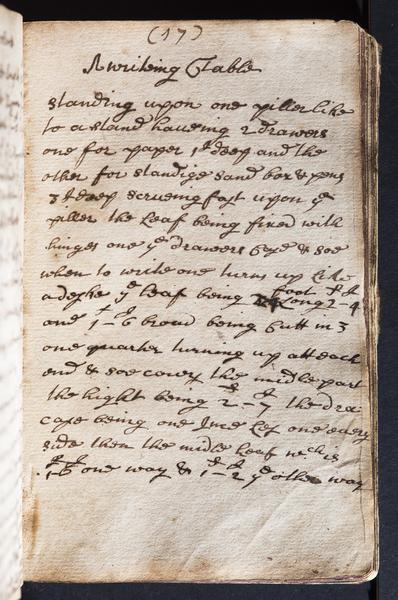 (17)
A writeing Table
standing upon one piller like
to a stand haueing 2 drawers
one for paper 1 I deep and the
other for standige sand box & pens
3 I deep scrueing fast upon ye
piller the Leaf being fixed with
hinges one ye drawers & soe
when to write one turns up Like
a deske ye leaf being foot Long 2-4
and 1-6 broad being Cutt in 3
one quarter turning up att each
end & soe couer the midle part
the hight being 2-7 the dra
case being one Ince Les one euery
side then the midle leaf wch is
1-6 one way & 1-2 ye other way